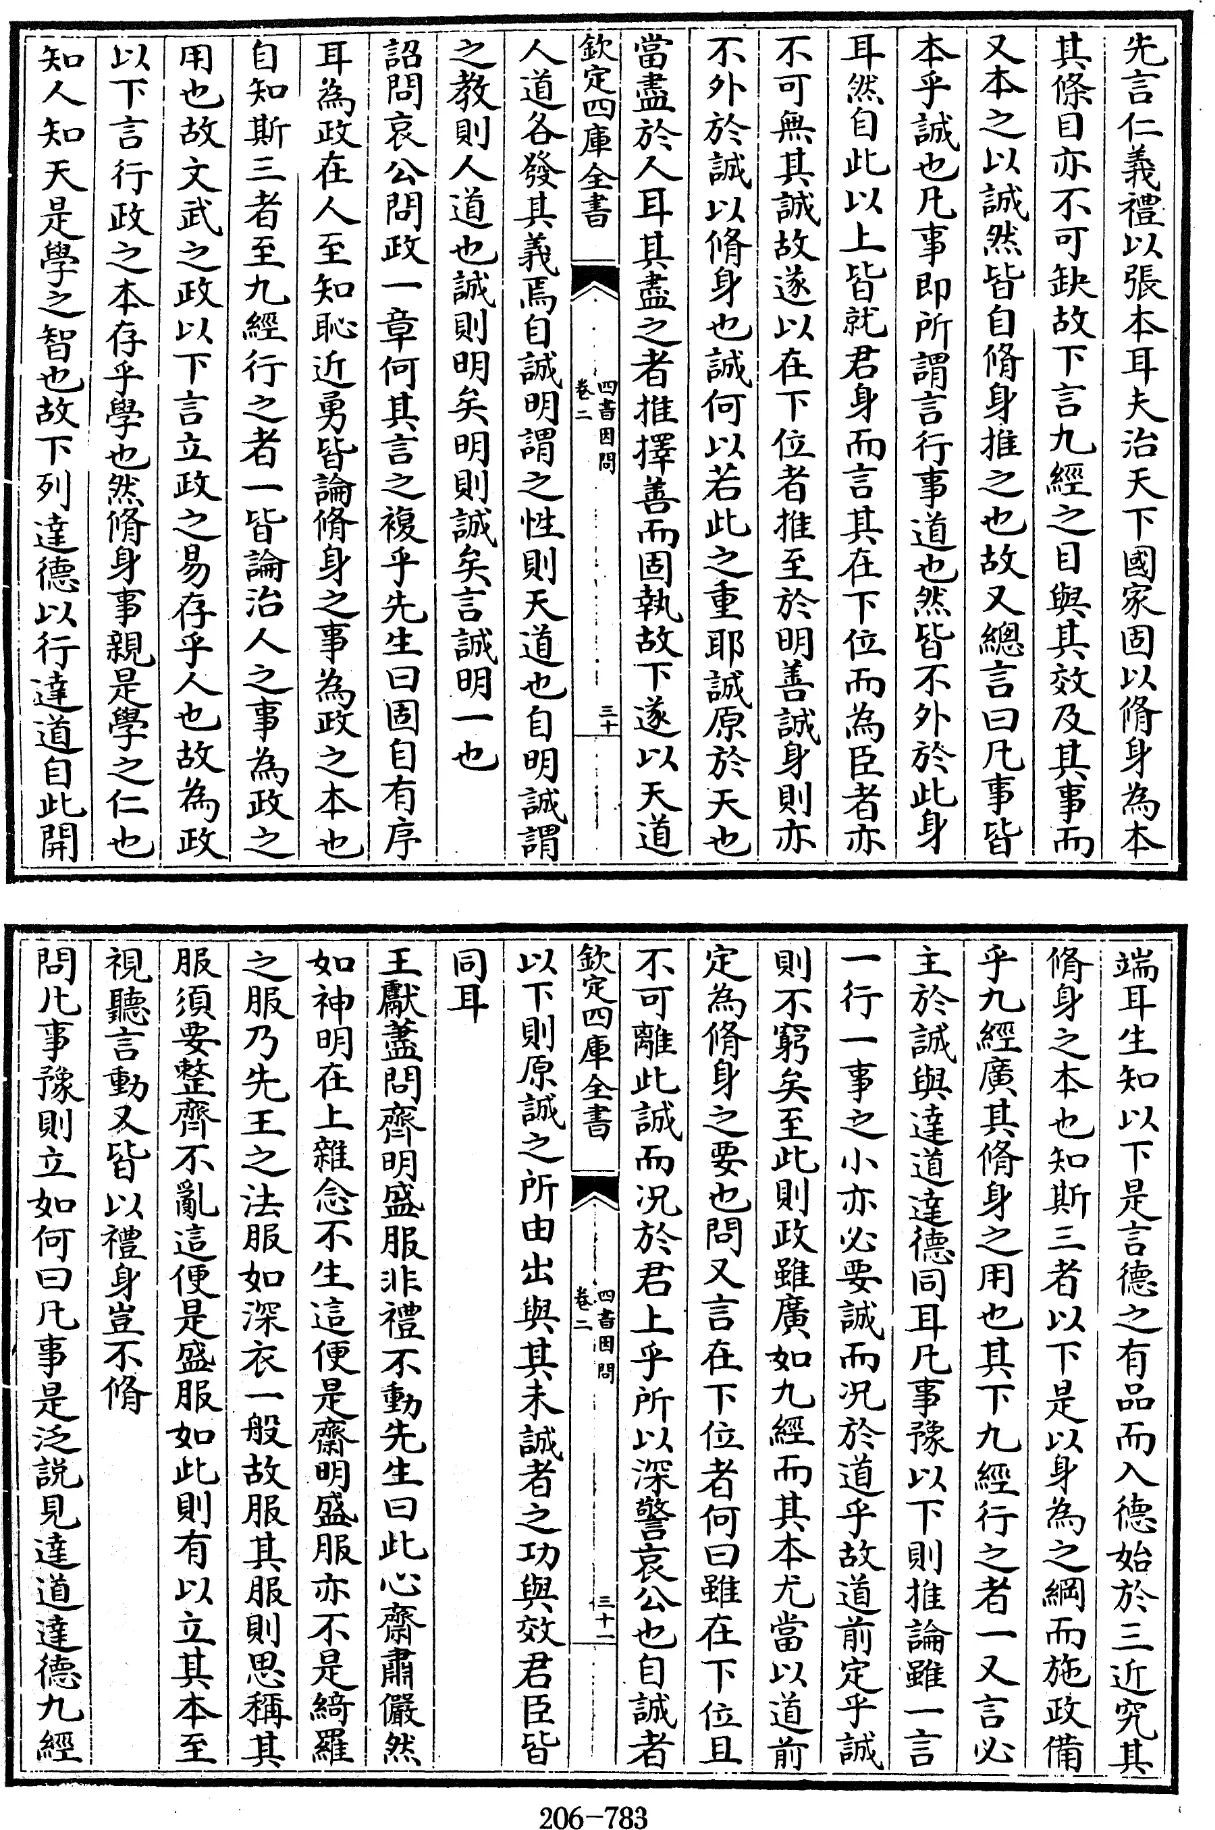 先言仁義禮以張本耳夫治天下國家固以脩身為本
其條目亦不可缺故下言九經之目與其效及其事而
又本之以誠然皆自脩身推之也故又總言曰凡事皆
本乎誠也凡事即所謂言行事道也然皆不外於此身
耳然自此以上皆就君身而言其在下位而為臣者亦
不可無其誠故遂以在下位者推至於明善誠身則亦
不外於誠以脩身也誠何以若此之重耶誠原於天也
當盡於人耳其盡之者推擇善而固執故下遂以天道
欽定四庫全書
四書因問
卷二
三十
人道各發其義焉自誠明謂之性則天道也自明誠謂
之教則人道也誠則明矣明則誠矣言誠明一也
詔問哀公問政一章何其言之複乎先生曰固自有序
耳為政在人至知恥近勇皆論脩身之事為政之本也
自知斯三者至九經行之者一皆論治人之事為政之
用也故文武之政以下言立政之易存乎人也故為政
以下言行政之本存乎學也然脩身事親是學之仁也
知人知天是學之智也故下列達德以行達道自此開
端耳生知以下是言德之有品而入德始於三近究其
脩身之本也知斯三者以下是以身為之綱而施政備
乎九經廣其脩身之用也其下九經行之者一又言必
主於誠與達道達德同耳凡事豫以下則推論雖一言
一行一事之小亦必要誠而况於道乎故道前定乎誠
則不窮矣至此則政雖廣如九經而其本尤當以道前
定為脩身之要也問又言在下位者何曰雖在下位且
不可離此誠而况於君上乎所以深警哀公也自誠者
欽定四庫全書
四書因問
卷二
三十一
以下則原誠之所由出與其未誠者之功與效君臣皆
同耳
王獻藎問齊明盛服非禮不動先生曰此心齋肅儼然
如神明在上雜念不生這便是齋明盛服亦不是綺羅
之服乃先王之法服如深衣一般故服其服則思稱其
服須要整齊不亂這便是盛服如此則有以立其本至
視聽言動又皆以禮身豈不脩
問凡事豫則立如何曰凡事是泛説見達道達德九經
206-783